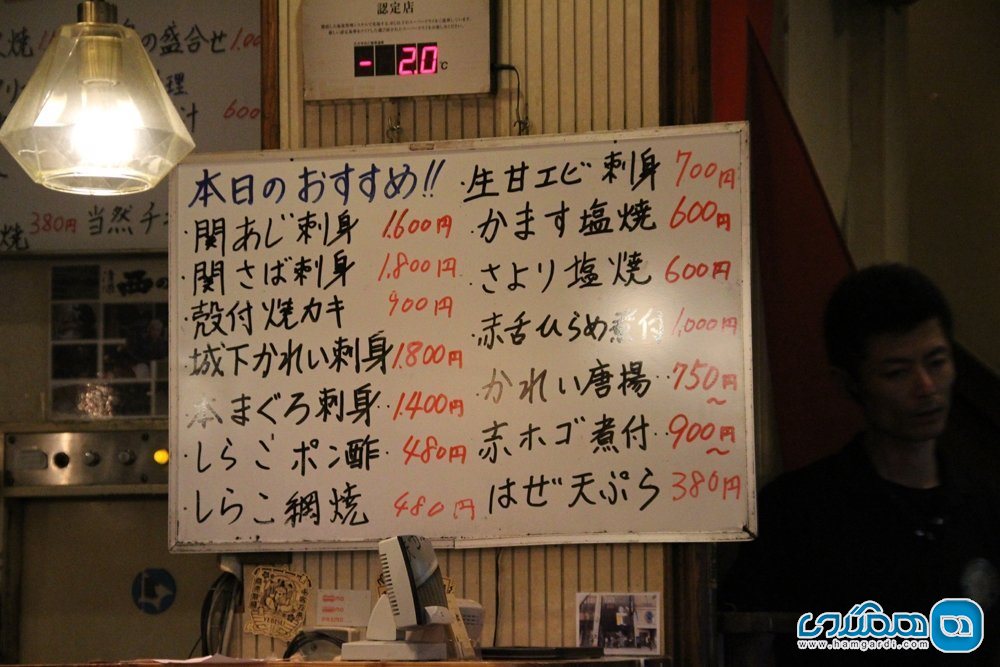 認定店
- 2.0℃
の盛合せ
理
600
焼 380円 当然チ
西の
本日のおすすめ!!
・関あじ刺身 1.600円
・関さば刺身 1.800円
・殻付焼カキ 900円
・城下かれい刺身 1.800円
・本まぐろ刺身 1.400円
・しらごポン酢 480円
・しらこ網焼 480円
・生甘エビ刺身 700円
・かます塩焼 600円
・さより塩焼 600円
・赤舌ひらめ煮付 1,000円
・かれい唐揚 750円~
・赤ホゴ煮付 900円~
・はぜ天ぷら 380円
YEBISU
همگردی
www.hamgardi.com